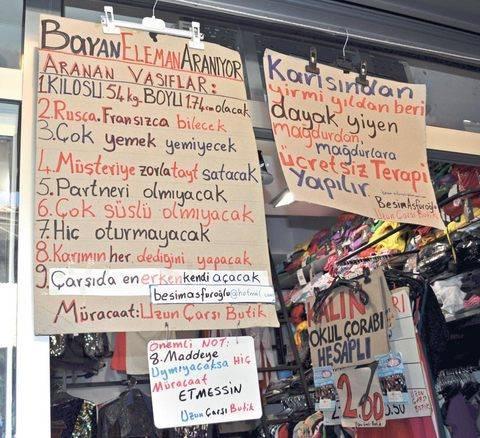 BAYAN ELEMAN ARANIYOR
ARANAN VASIFLAR:
1.KILOSU 54kg. BOYU 1.74cm olacak
2.Rusca.Fransızca bilecek
3.Çok yemek yemiyecek
4.Müşteriye zorla tayt satacak
5.Partneri olmıyacak
6.Çok süslü olmıyacak
7.Hiç oturmayacak
8.Karımın her dediğini yapacak
9.Çarşıda en erken kendi açacak
besimasfuroğlu@hotmail.com
Müracaat: Uzun Çarşı Butik
Önemli NOT:
8.Maddeye
Uymıyacaksa Hiç
Müracaat
ETMESSİN
Uzun Çarşı Butik
Karısından
yirmi yıldan beri
dayak yiyen
mağdurdan,
mağdurlara
ücretsiz Terapi
YAPILIR
Besim Asfuroğlu
Uzun Çarşı Butik
KALIN
OKUL ÇORABI
HESAPLI
2.00